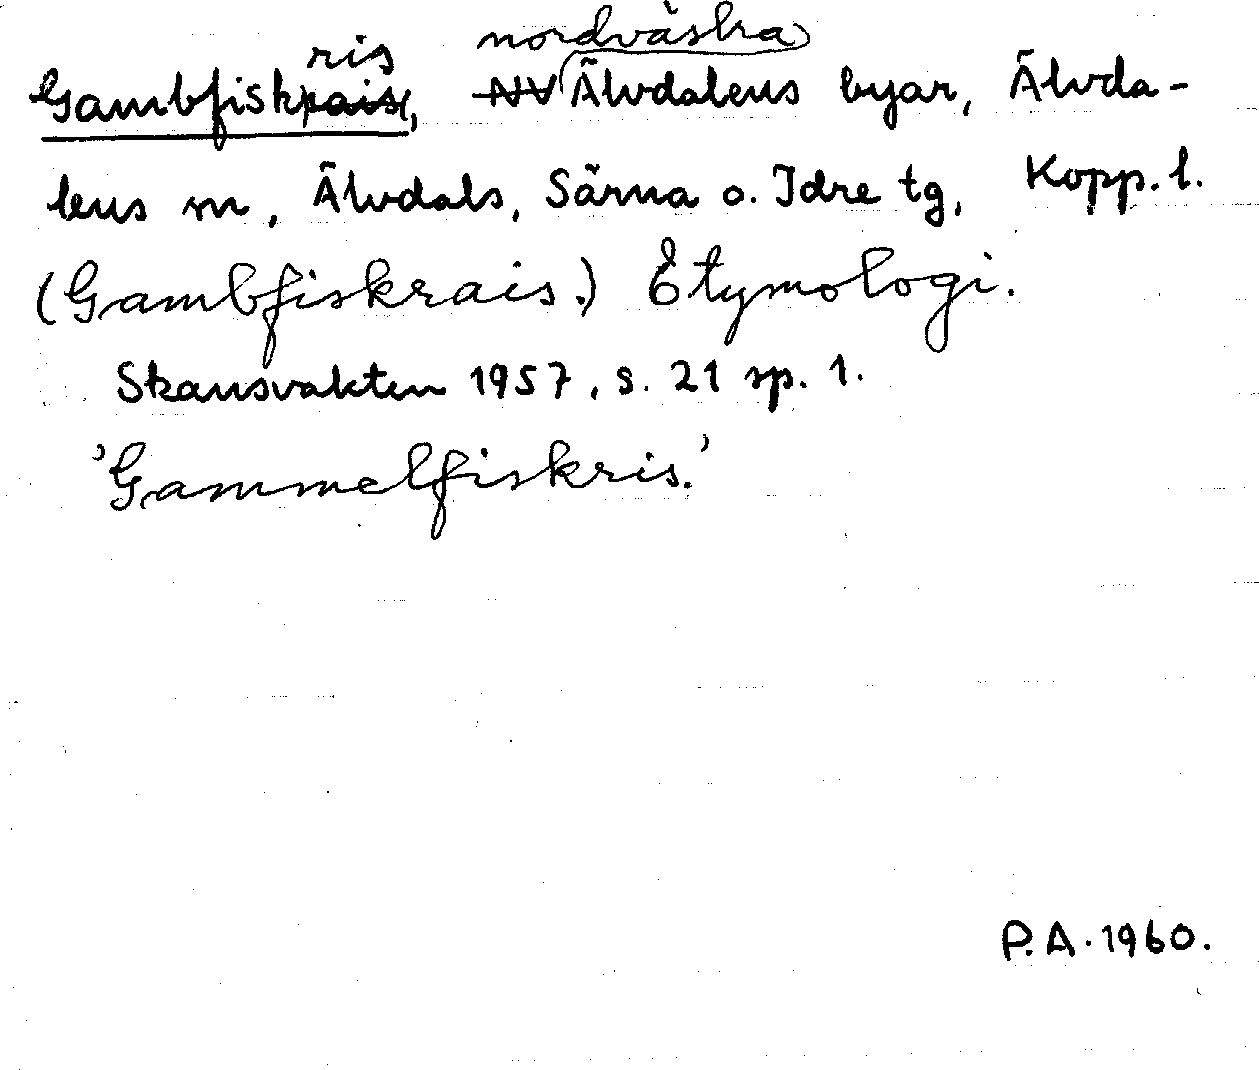 Gambfiskris, nordvästra Älvdalens byar, Älvda-
lens sn, Älvdals, Särna o. Idre tg, Kopp. l.
(Gambfiskrais.) Etymologi.
Skansvakten 1957, s. 21 sp. 1.
'Gammelfiskris.'
P.A. 1960.